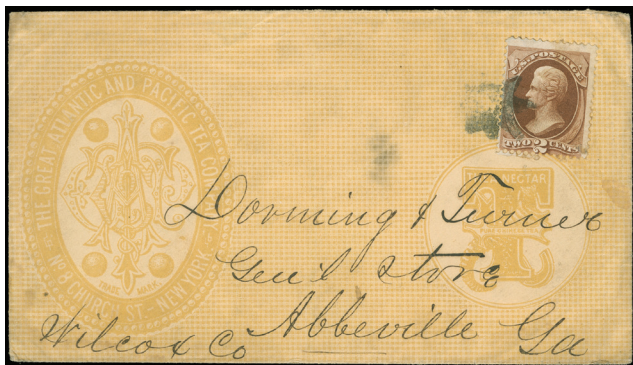 THE GREAT ATLANTIC AND PACIFIC TEA CO
ST. NEW YORK
TRADE MARK
U.S. POSTAGE
TWO 2 CENTS
NECTAR
T
Dorming & Turner
Gen'l Store
Abbeville Ga
Wilcox Co